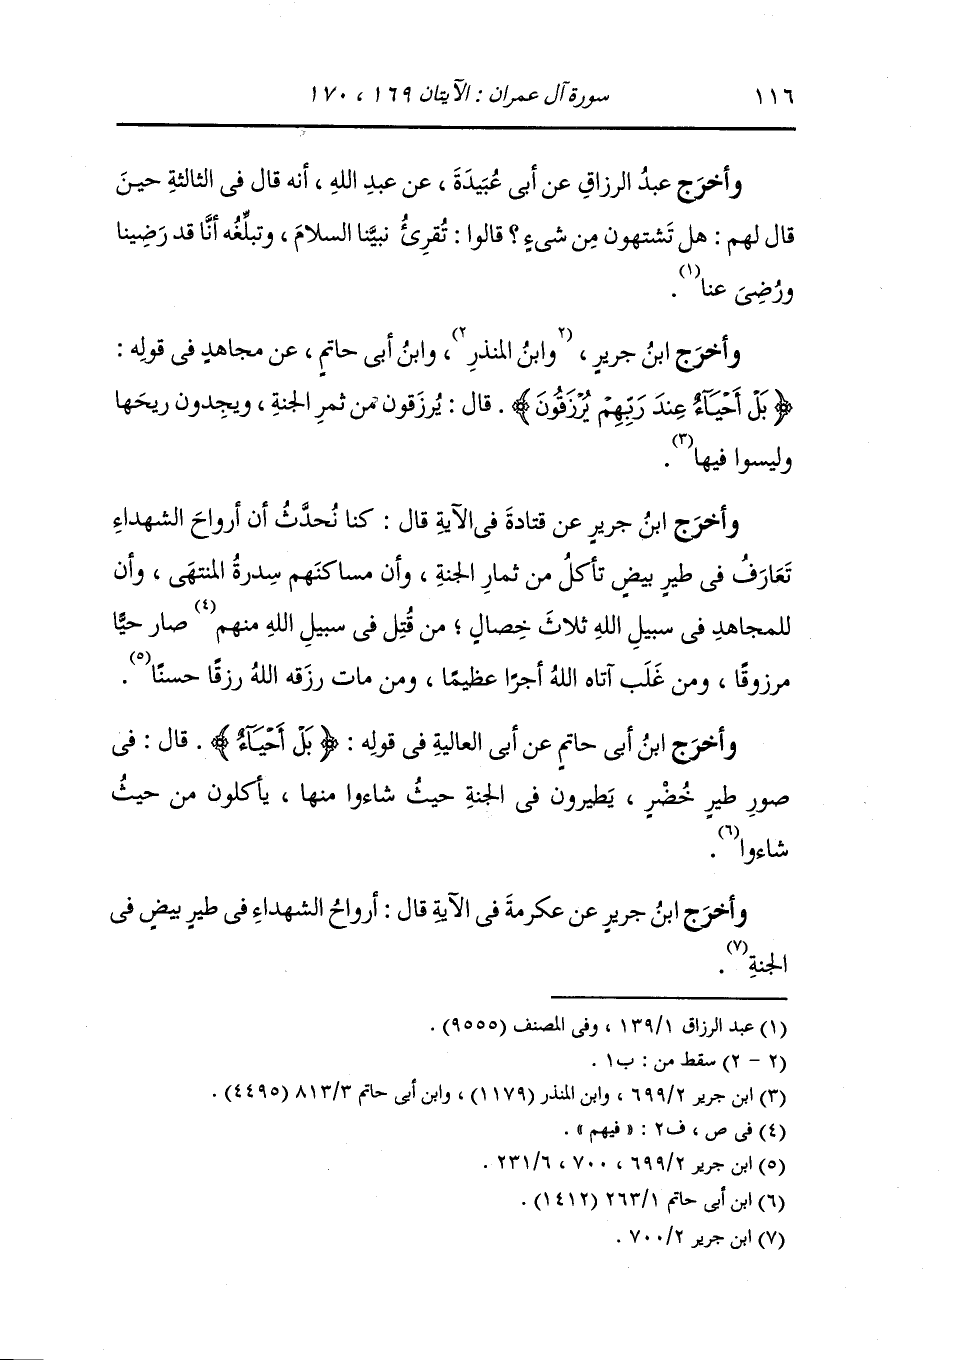 ١١٦ سورة آل عمران : الآيتان ١٦٩ ، ١٧٠
وأخرَج عبدُ الرزاقِ عن أبى عُبَيدَةَ ، عن عبدِ اللهِ ، أنه قال فى الثالثةِ حينَ
قال لهم : هل تَشتهون مِن شىءٍ ؟ قالوا : تُقرِئُ نبيَّنا السلامَ ، وتبلِّغُه أنَّا قد رَضِينا
ورُضِىَ عنا(١) .
وأخرَج ابنُ جريرٍ ، (٢وابنُ المنذرِ٢) ، وابنُ أبى حاتمٍ ، عن مجاهدٍ فى قولِه :
﴿ بَلْ أَحْيَآءٌ عِندَ رَبِّهِمْ يُرْزَقُونَ ﴾ . قال : يُرزَقون من ثمرِ الجنةِ ، ويجِدون ريحَها
وليسوا فيها(٣) .
وأخرَج ابنُ جريرٍ عن قتادةَ فى الآيةِ قال : كنا نُحدَّثُ أن أرواحَ الشهداءِ
تَعَارَفُ فى طيرٍ بيضٍ تأكلُ من ثمارِ الجنةِ ، وأن مساكنَهم سِدرةُ المنتهَى ، وأن
للمجاهدِ فى سبيلِ اللهِ ثلاثَ خِصالٍ ؛ من قُتِل فى سبيلِ اللهِ منهم(٤) صار حيًّا
مرزوقًا ، ومن غَلَب آتاه اللهُ أجرًا عظيمًا ، ومن مات رزَقه اللهُ رزقًا حسنًا(٥) .
وأخرَج ابنُ أبى حاتمٍ عن أبى العاليةِ فى قولِه : ﴿ بَلْ أَحْيَآءٌ ﴾ . قال : فى
صورِ طيرٍ خُضْرٍ ، يَطيرون فى الجنةِ حيثُ شاءوا منها ، يأكلون من حيثُ
شاءوا(٦) .
وأخرَج ابنُ جريرٍ عن عكرمةَ فى الآيةِ قال : أرواحُ الشهداءِ فى طيرٍ بيضٍ فى
الجنةِ(٧) .
(١) عبد الرزاق ١/ ١٣٩ ، وفى المصنف (٩٥٥٥) .
(٢ - ٢) سقط من : ب١ .
(٣) ابن جرير ٢/ ٦٩٩ ، وابن المنذر (١١٧٩) ، وابن أبى حاتم ٣/ ٨١٣ (٤٤٩٥) .
(٤) فى ص ، ف٢ : « فيهم » .
(٥) ابن جرير ٢/ ٦٩٩ ، ٧٠٠ ، ٦/ ٢٣١ .
(٦) ابن أبى حاتم ١/ ٢٦٣ (١٤١٢) .
(٧) ابن جرير ٢/ ٧٠٠ .